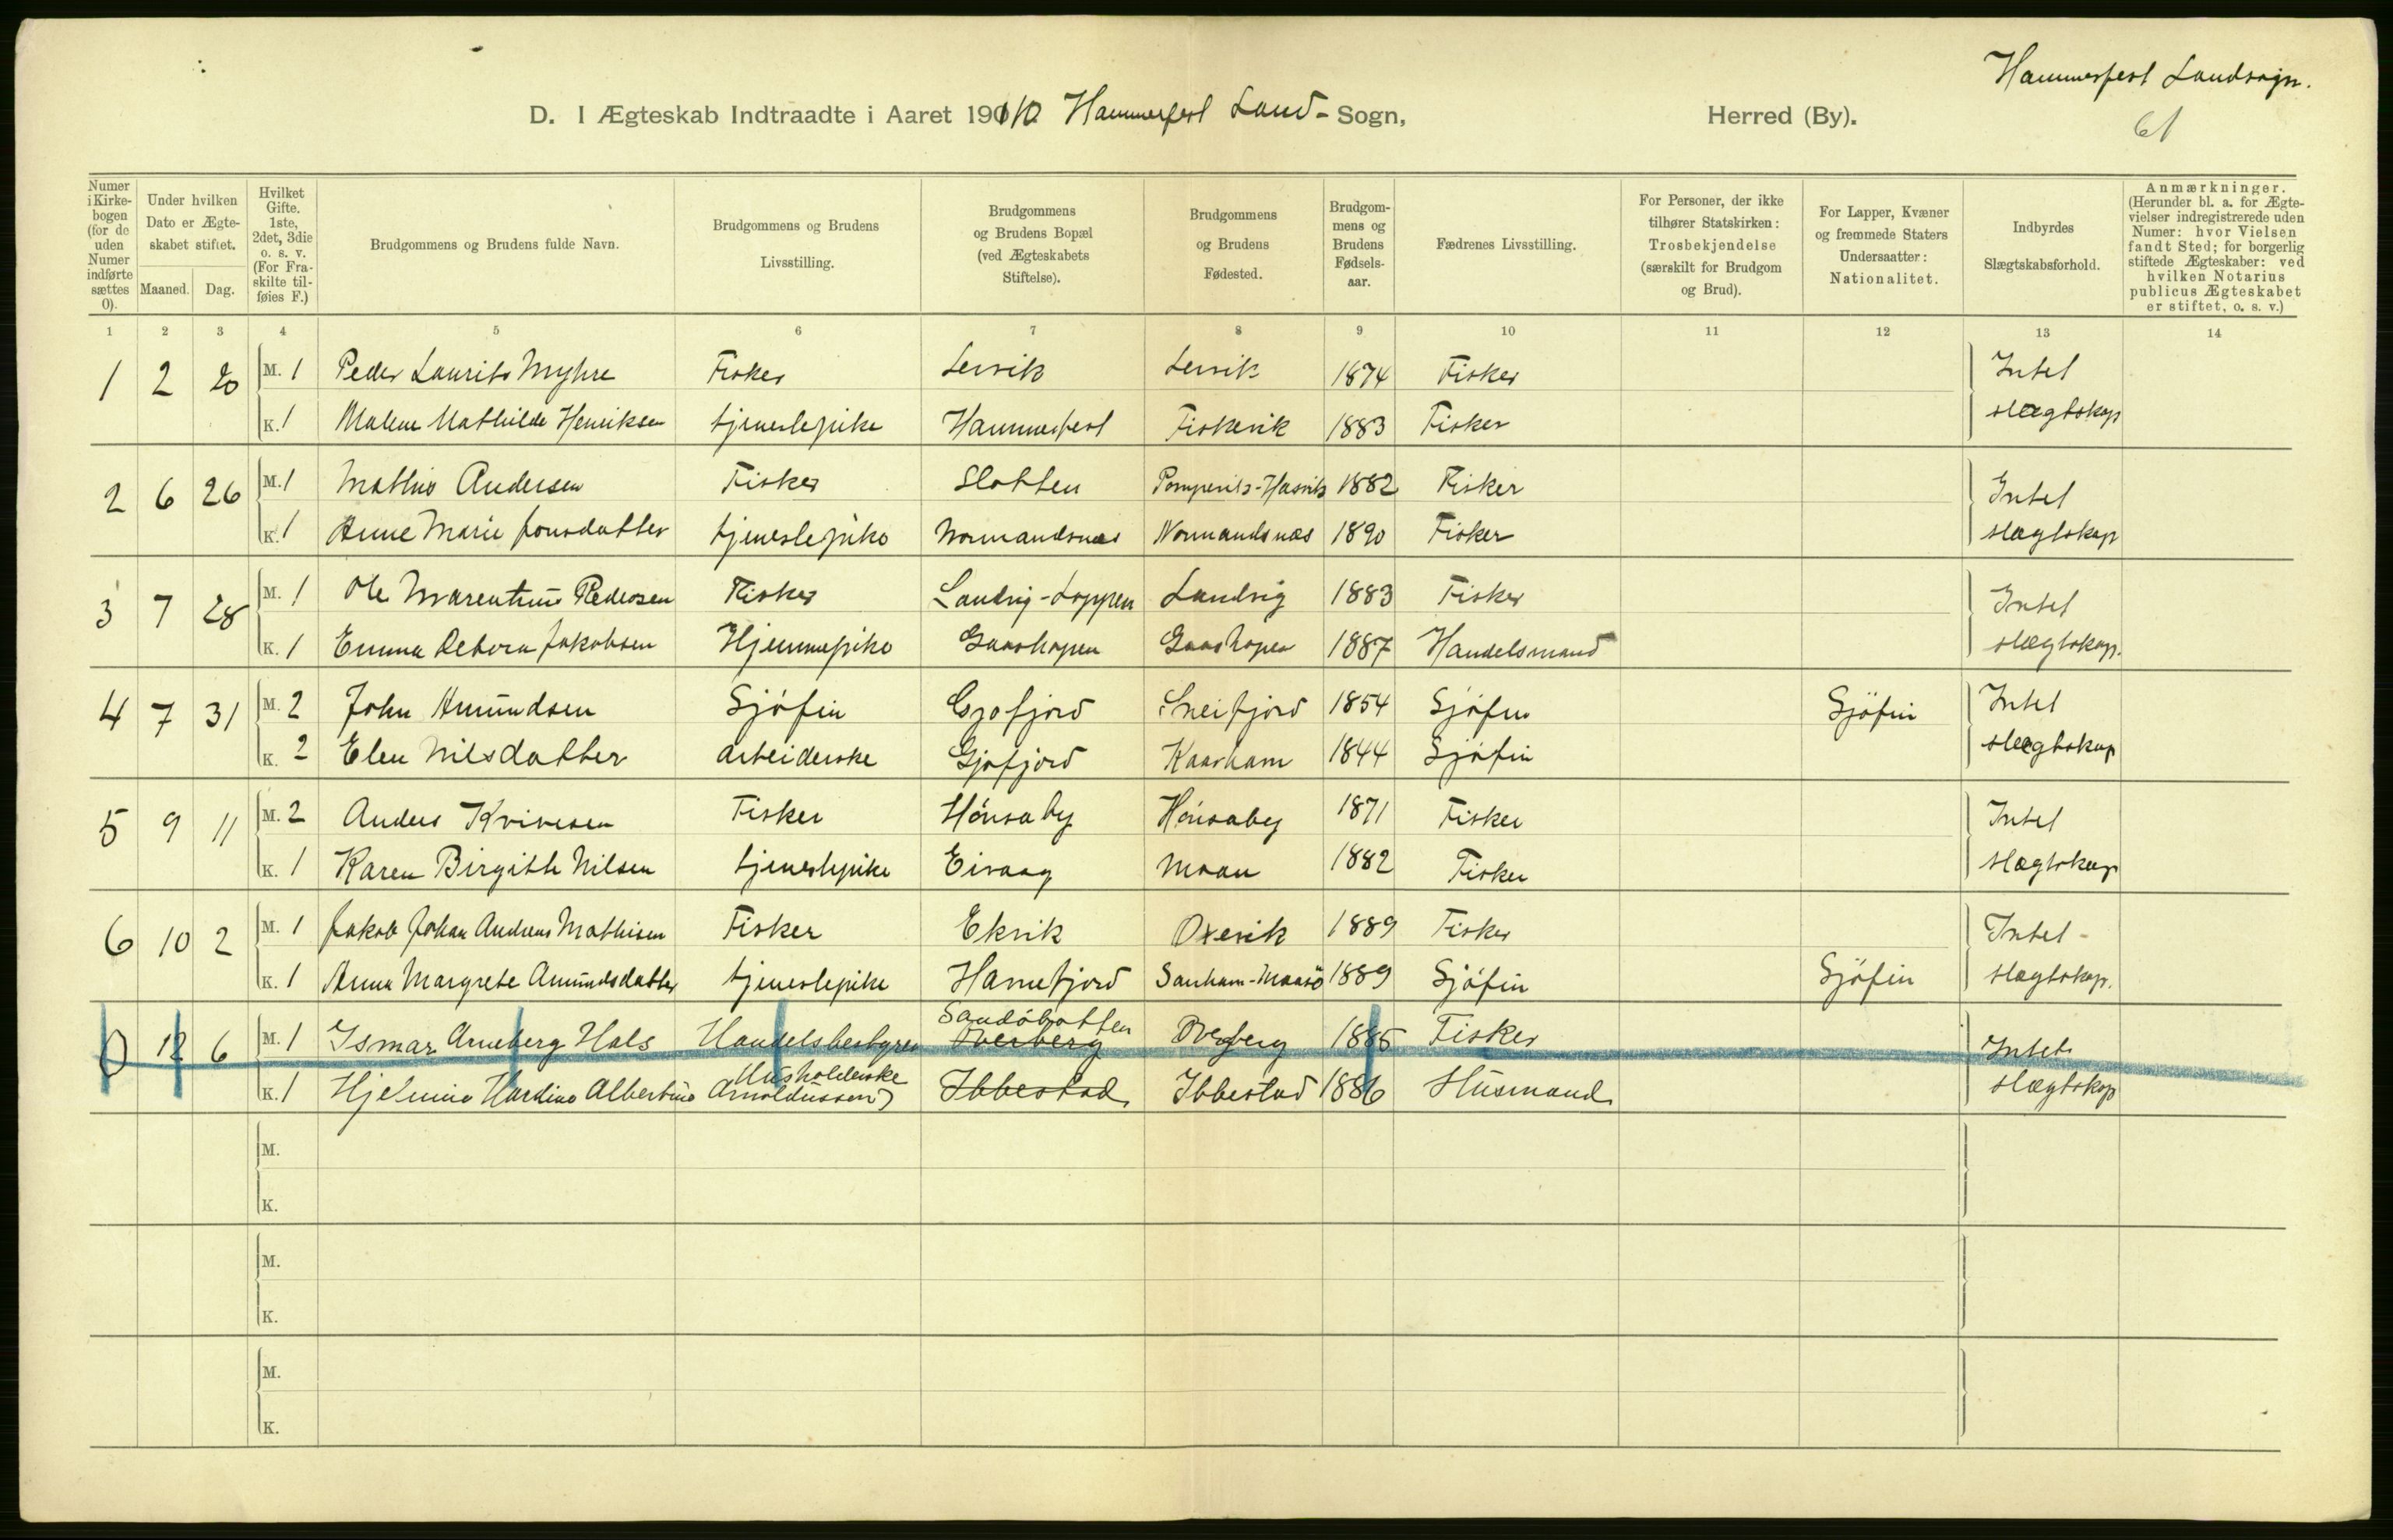 Hammerfest Landsogn.
61
D. I Ægteskab Indtraadte i Aaret 1910 Hammerfest Land- Sogn, Herred (By).
Numer i Kirke-bogen (for de uden Numer indførte sættes 0).
Under hvilken Dato er Ægte-skabet stiftet.
Maaned. Dag.
Hvilket Gifte. 1ste, 2det, 3die o. s. v. (For Fra-skilte til-føies F.)
Brudgommens og Brudens fulde Navn.
Brudgommens og Brudens Livsstilling.
Brudgommens og Brudens Bopæl (ved Ægteskabets Stiftelse).
Brudgommens og Brudens Fødested.
Brudgom-mens og Brudens Fødsels-aar.
Fædrenes Livsstilling.
For Personer, der ikke tilhører Statskirken: Trosbekjendelse (særskilt for Brudgom og Brud).
For Lapper, Kvæner og fremmede Staters Undersaatter: Nationalitet.
Indbyrdes Slægtskabsforhold.
Anmærkninger. (Herunder bl. a. for Ægte-vielser indregistrerede uden Numer: hvor Vielsen fandt Sted; for borgerlig stiftede Ægteskaber: ved hvilken Notarius publicus Ægteskabet er stiftet, o. s. v.)
1 2 3 4 5 6 7 8 9 10 11 12 13 14
1 2 20 M. 1 Peder Laurits Myhre Fisker Lervik Lervik 1874 Fisker Intet
K. 1 Malene Mathilde Henriksen tjenestepike Hammerfest Fiskevik 1883 Fisker slægtskap
2 6 26 M. 1 Mathis Andersen Fisker Slotten 1882 Fisker Intet
K. 1 Anne Marie Jonsdatter tjenestepike Normandsnæs Normandsnæs 1890 Fisker slægtskap
3 7 28 M. 1 Ole Marentius Pedersen Fisker Landvig-Loppen Landvig 1883 Fisker Intet
K. 1 Emma Debora Jakobsen Hjemmepike Gaashopen Gaashopen 1887 Handelsmand slægtskap.
4 7 31 M. 2 John Amundsen Sjøfin Gjøfjord Sneifjord 1854 Sjøfin Sjøfin Intet
K. 2 Elen Nilsdatter arbeiderske Gjøfjord Kaarhavn 1844 Sjøfin slægtskap
5 9 11 M. 2 Anders Kvivesen Fisker Hønsaby Hønsaby 1871 Fisker Intet
K. 1 Karen Birgitte Nilsen tjenestepike Eivaag 1882 Fisker slægtskap
6 10 2 M. 1 Jakob Johan Andreas Mathisen Fisker Ekvik Oxevik 1889 Fisker Intet-
K. 1 Anna Margrete Amundsdatter tjenestepike Hamefjord Sarhavn-Maasø 1889 Sjøfin Sjøfin slægtskap.
0 12 6 M. 1 Ismar Arneberg Hals Handelsbestyrer Sandøbotten Overberg Overberg 1885 Fisker Intet
K. 1 Hjelmine Hardine Albertine Arnoldussen Husholderske Ibbestad Ibbestad 1886 Husmand slægtskap
M.
K.
M.
K.
M.
K.